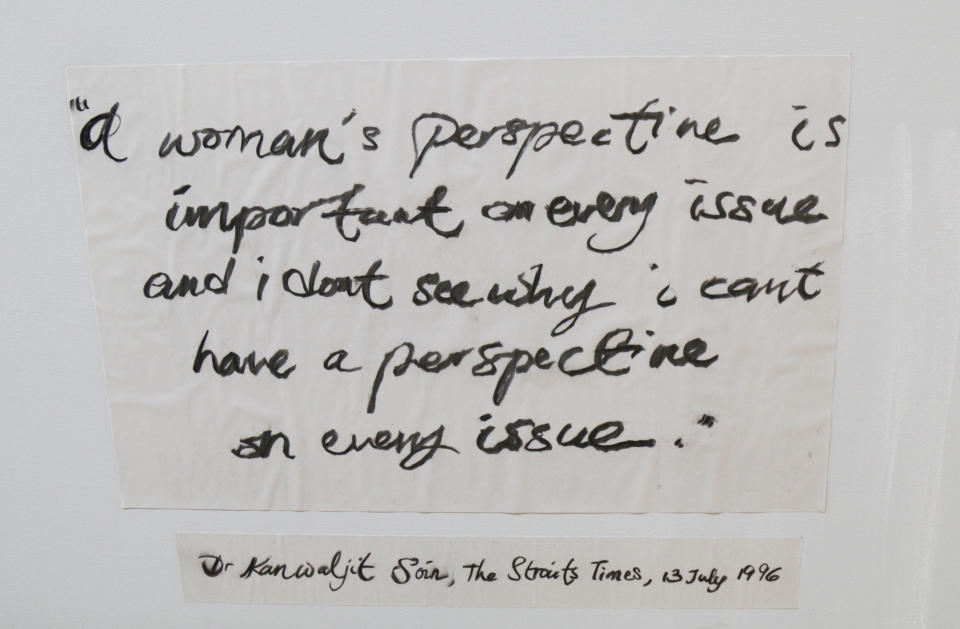 "A woman's perspective is
important on every issue
and i dont see why i cant
have a perspective
on every issue."
Dr Kanwaljit Soin, The Straits Times, 13 July 1996